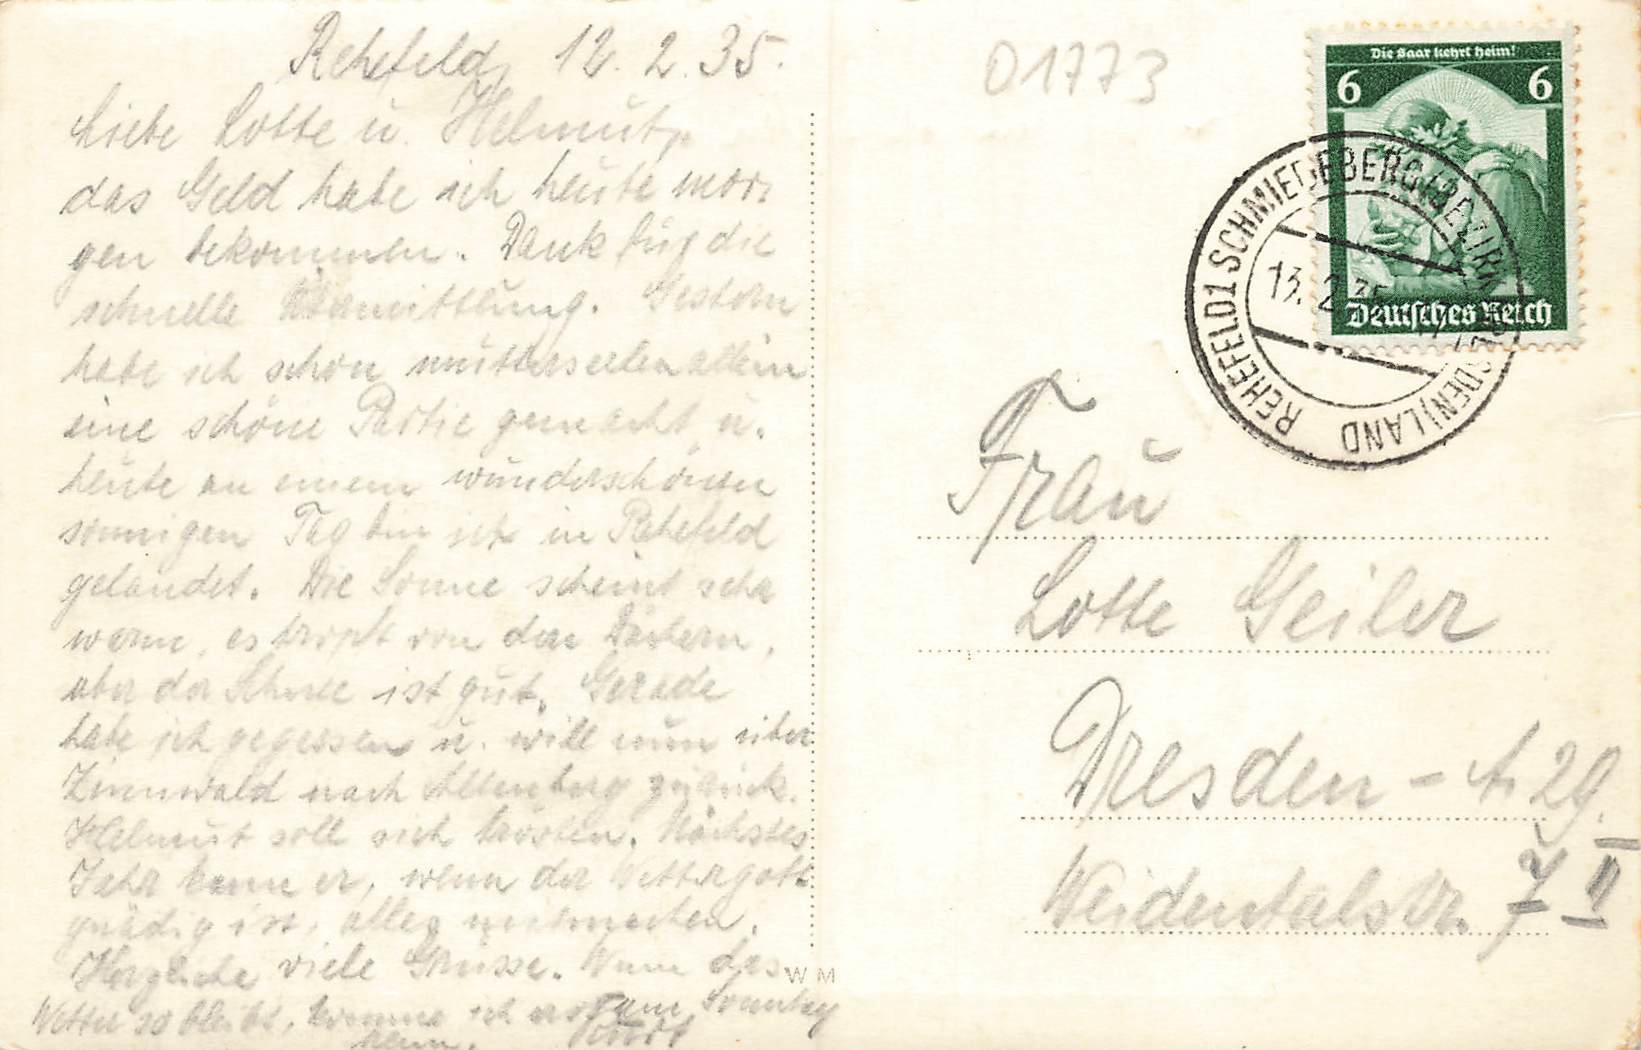 Rehefeld, 12. 2. 35.
Liebe Lotte u. Helmut,
das Geld habe ich heute mor-
gen bekommen. Dank für die
schnelle Übermittlung. Gestern
habe ich schon mutterseelenallein
eine schöne Partie gemacht u.
heute an einem wunderschönen
sonnigen Tag bin ich in Rehefeld
gelandet. Die Sonne scheint sehr
warm, es tropft von den Dächern,
aber der Schnee ist gut. Gerade
habe ich gegessen u. will nun über
Zinnwald nach Altenberg zurück.
Helmut soll sich trösten. Nächstes
Jahr kann er, wenn der Wettergott
gnädig ist, alles mitmachen.
Herzliche viele Grüsse. Wenn das
Wetter so bleibt, komme ich erst am Sonntag
heim.
WM
01773
Die Saar kehrt heim!
6 6
Deutsches Reich
REHEFELD 1 SCHMIEDEBERG (BEZIRK DRESDEN) LAND
13. 2. 35
Frau
Lotte Geiler
Dresden - A 29.
Weidentalstr. 7 II